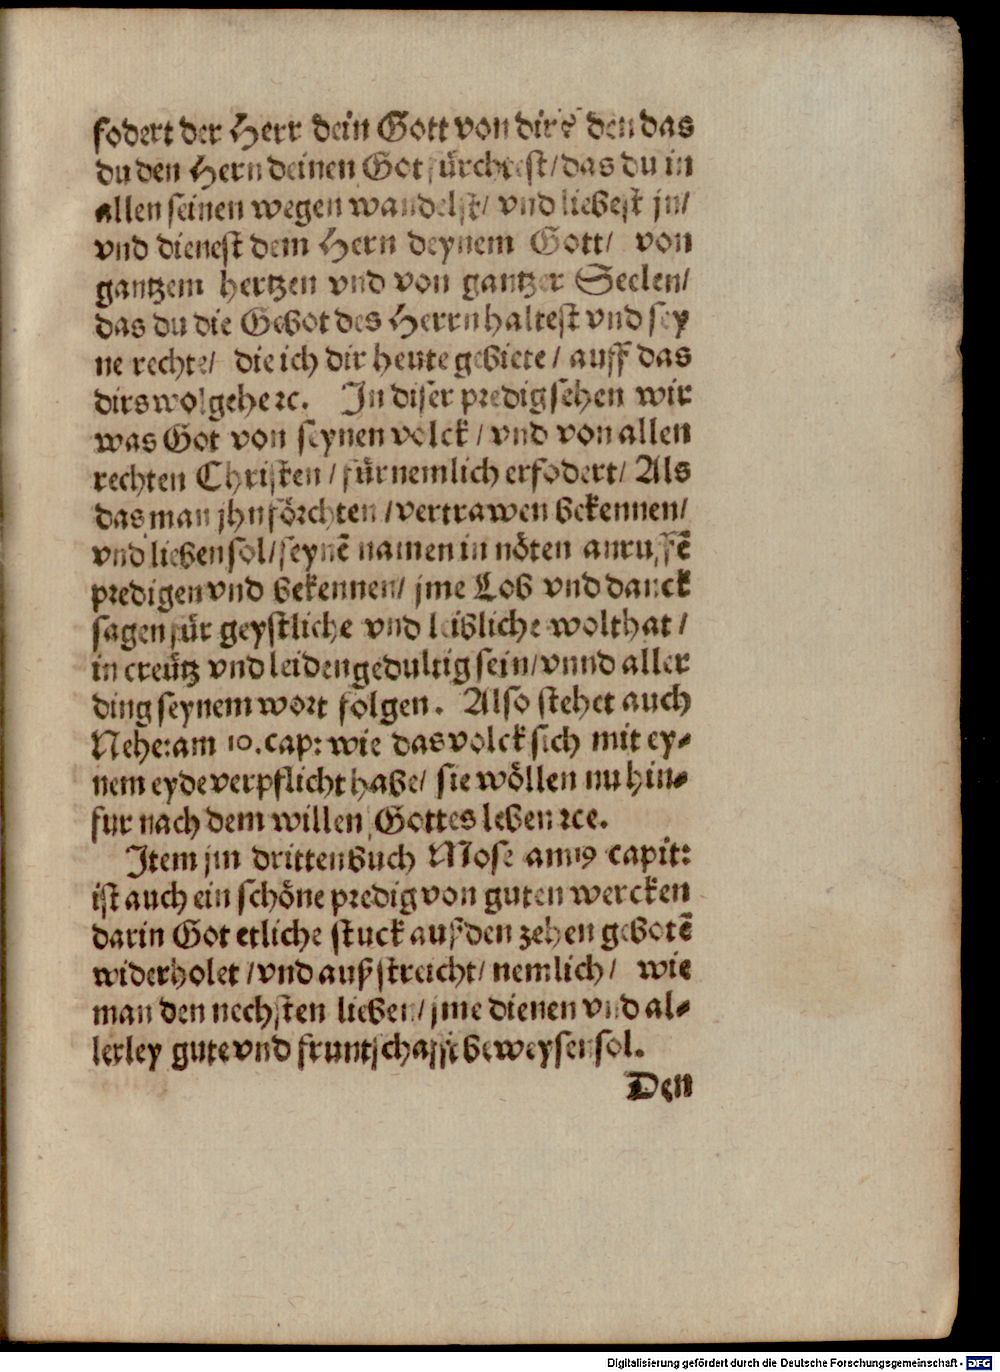 fodert der Herr dein Gott von dir? den das
du den Hern deinen Got fürchtest/ das du in
allen seinen wegen wandelst/ vnd liebest jn/
vnd dienest dem Hern deynem Gott/ von
gantzem hertzen vnd von gantzer Seelen/
das du die Gebot des Herrn haltest vnd sey
ne rechte/ die ich dir heute gebiete/ auff das
dirs wolgehe ꝛc. In diser predig sehen wir
was Got von seynen volck/ vnd von allen
rechten Christen/ fürnemlich erfodert/ Als
das man jhn förchten/ vertrawen bekennen/
vnd lieben sol/ seynē namen in nöten anruffē
predigen vnd bekennen/ jme Lob vnd danck
sagen für geystliche vnd leibliche wolthat/
in creütz vnd leiden gedultig sein/ vnnd aller
ding seynem wort folgen. Also stehet auch
Nehe: am 10. cap: wie das volck sich mit ey⸗
nem eyde verpflicht habe/ sie wöllen nu hin⸗
fur nach dem willen Gottes leben ꝛce.
Item jm dritten buch Mose am 19 capit:
ist auch ein schöne predig von guten wercken
darin Got etliche stuck auf den zehen gebotē
widerholet/ vnd außstreicht/ nemlich/ wie
man den nechsten lieben/ jme dienen vnd al⸗
lerley gute vnd fruntschafft beweysen sol.
Den
Digitalisierung gefördert durch die Deutsche Forschungsgemeinschaft - DFG